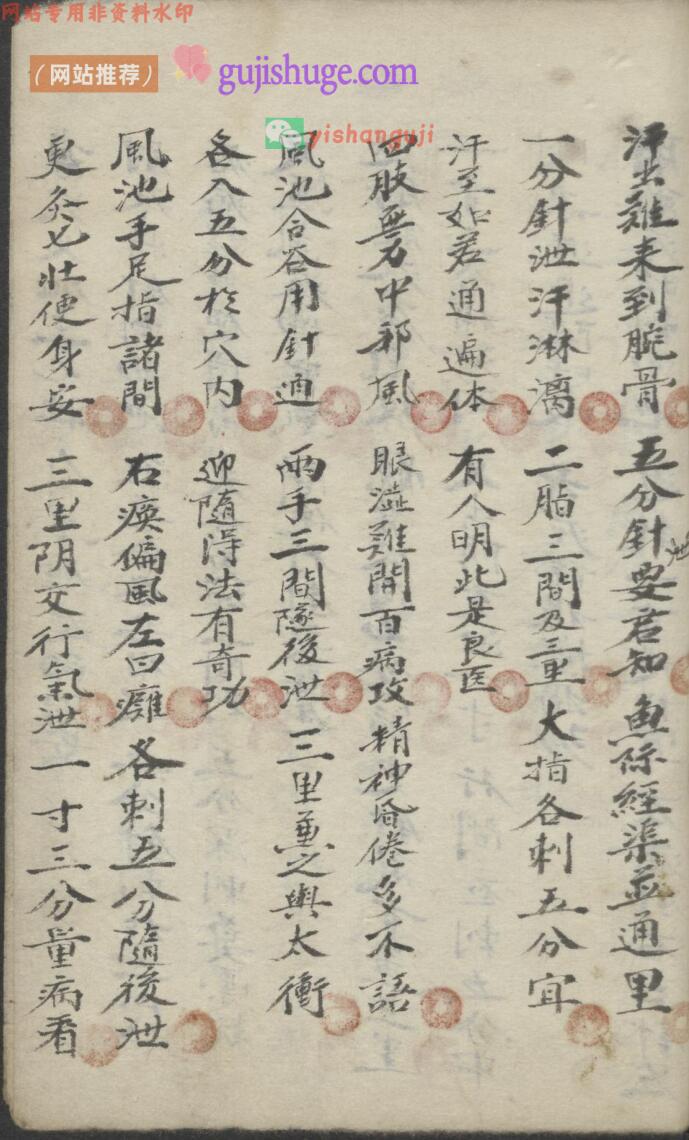 网站专用非资料水印
(网站推荐) gujishuge.com
yishanguji
汗出難来到腕骨 五分針泄要君知 魚际經渠並通里
一分針泄汗淋漓 二脂三間及三里 大指各刺五分宜
汗至如若通遍体 有人明此是良医
四肢無力中邪風 眼澁難開百病攻 精神昏倦多不語
風池合谷用針通 兩手三間隧後泄 三里兼之與太衝
各入五分於穴内 迎隨淂法有奇功
風池手足指諸間 右痪偏風左曰癱 各刺五分隨後泄
更灸七壯便身安 三里阴交行氣泄 一寸三分量病看